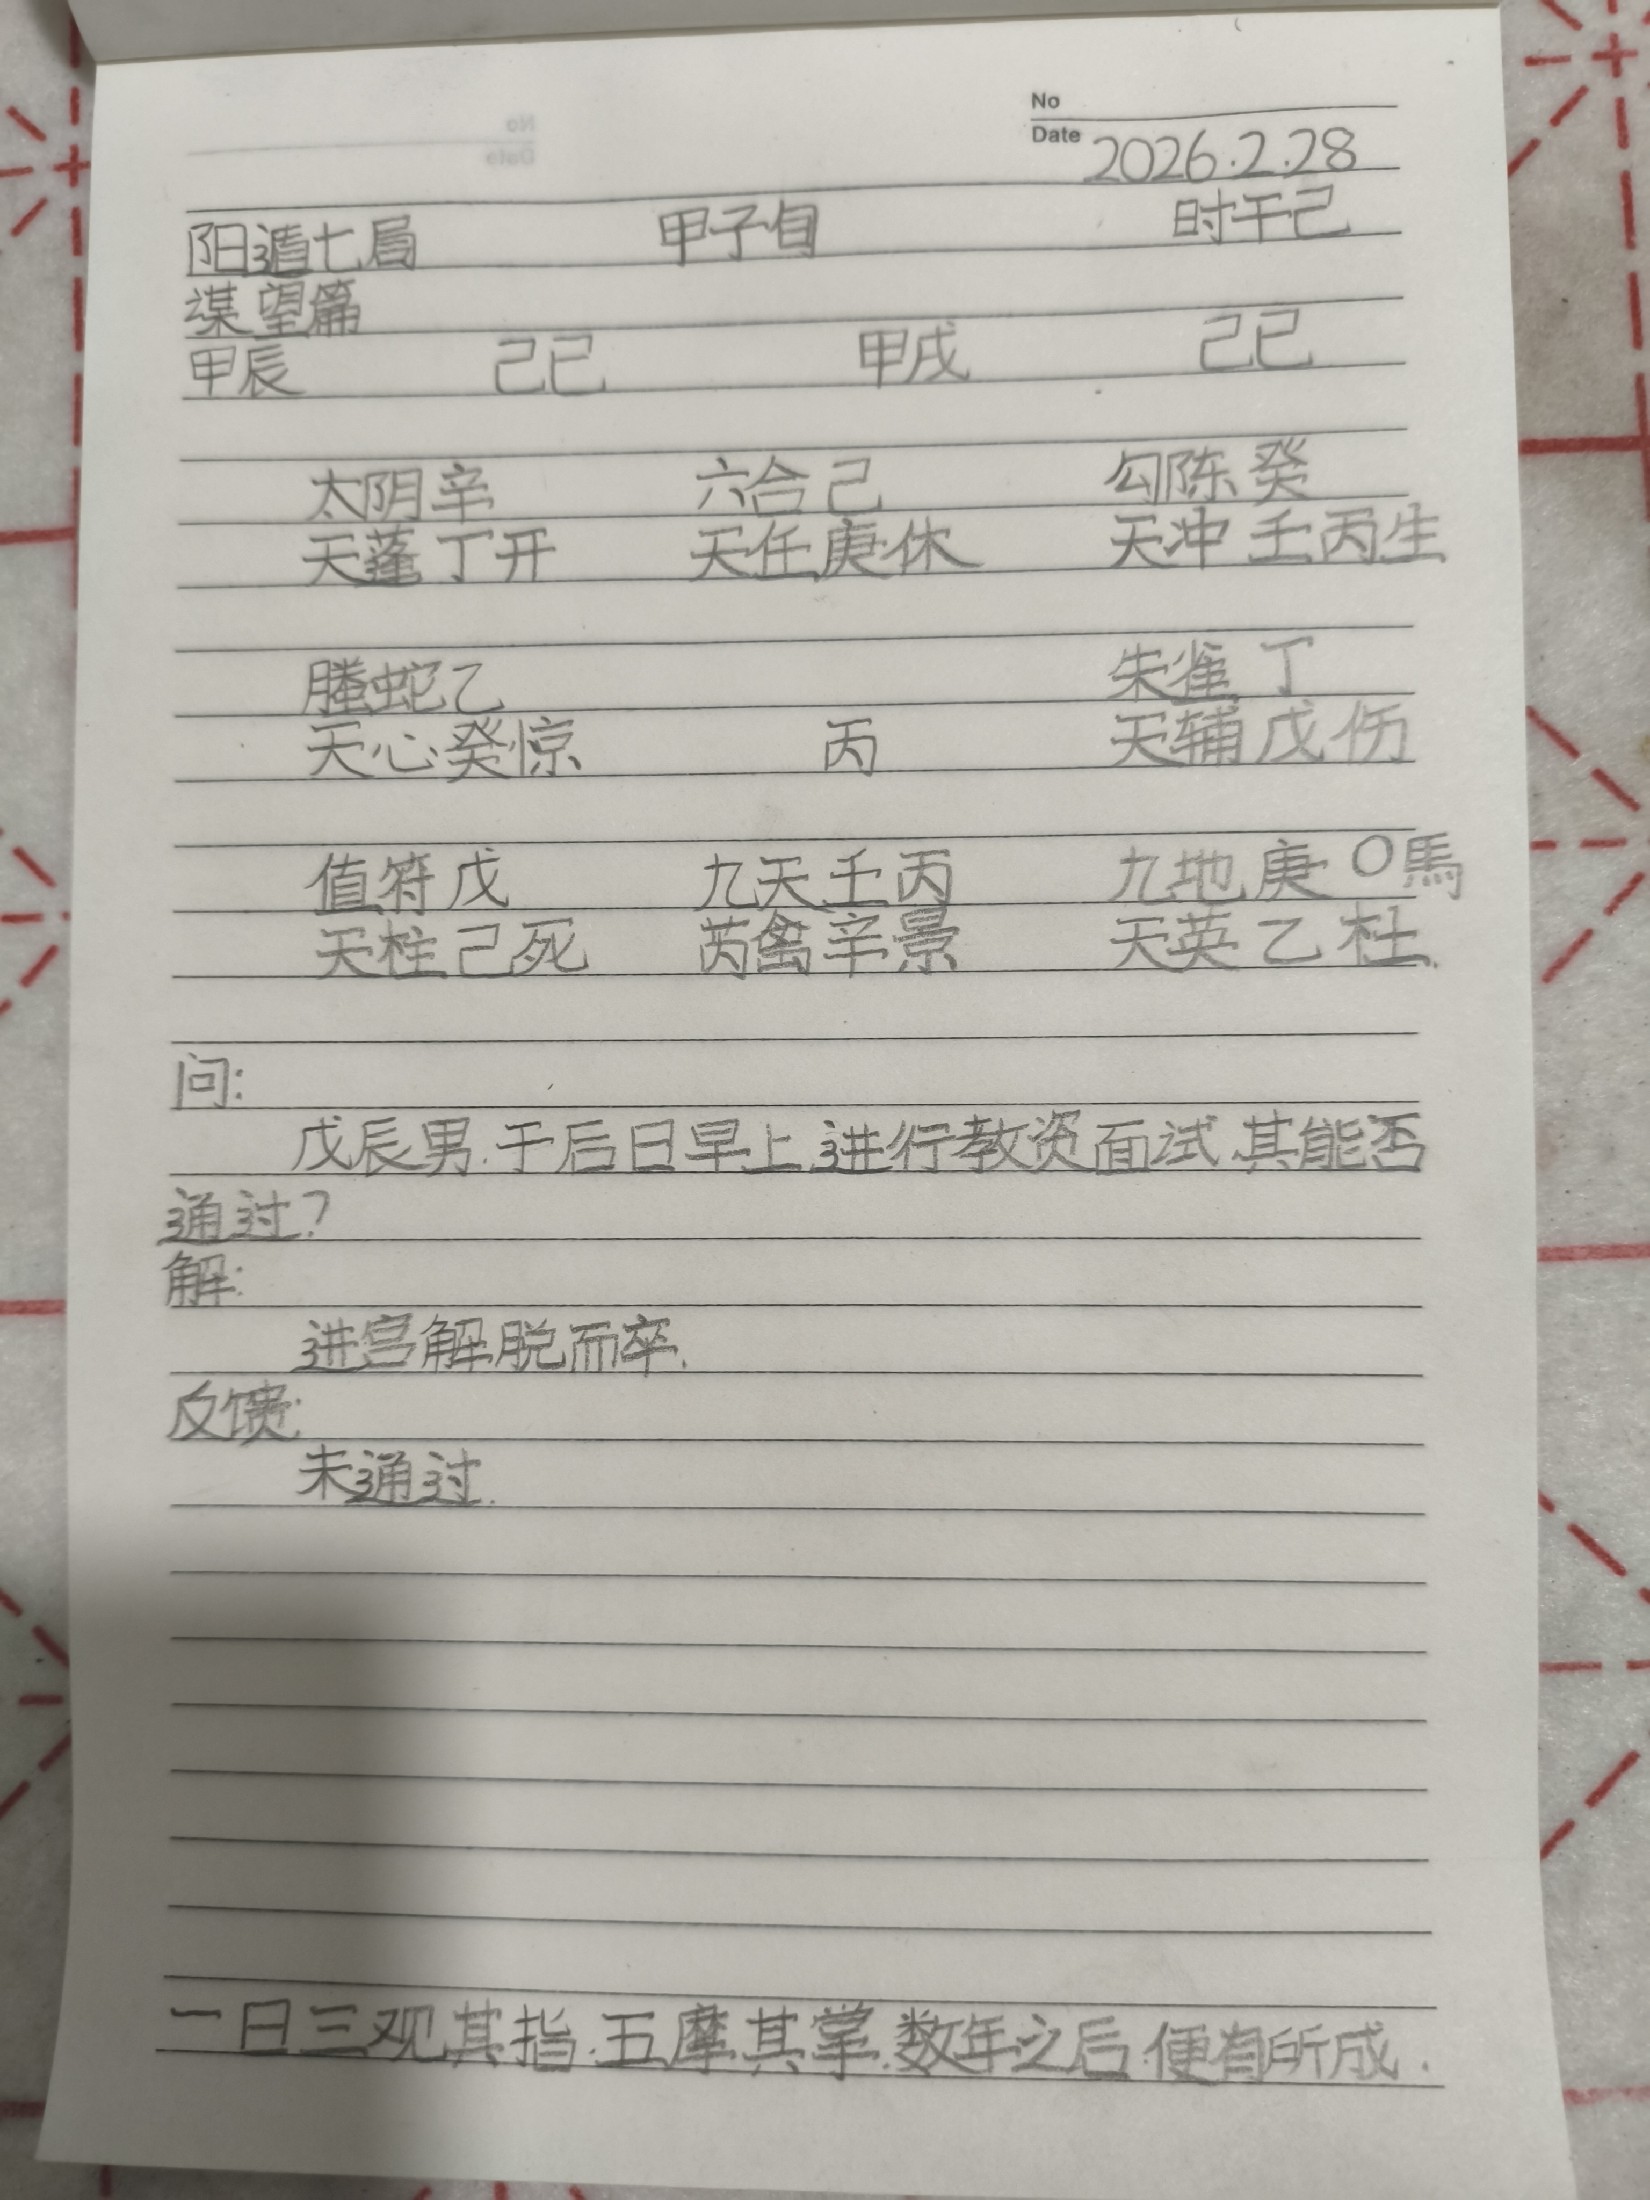 No
Date 2026.2.28
阳遁七局 甲子旬 时干己
谋望篇
甲辰 己巳 甲戌 己巳
太阴辛 六合己 勾陈癸
天蓬丁开 天任庚休 天冲壬丙生
螣蛇乙 朱雀丁
天心癸惊 丙 天辅戊伤
值符戊 九天壬丙 九地庚〇馬
天柱己死 芮禽辛景 天英乙杜.
问:
戊辰男.于后日早上.进行教资面试.其能否
通过?
解:
进宫解脱而卒.
反馈:
未通过.
一日三观其指.五摩其掌.数年之后.便有所成.